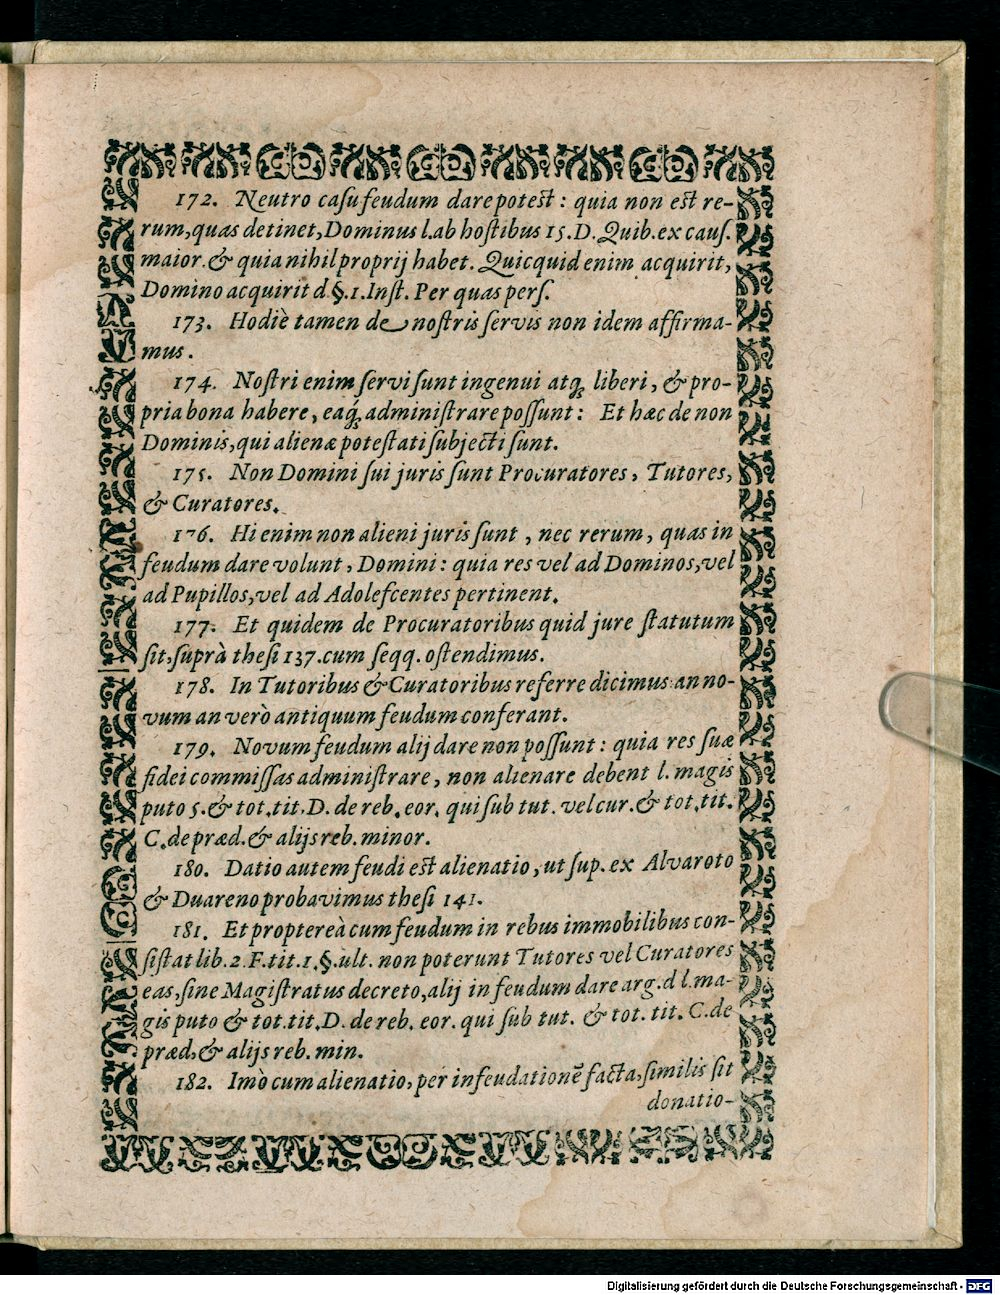 172. Neutro casu feudum dare potest : quia non est re-
rum, quas detinet, Dominus l. ab hostibus 15. D. Quib. ex caus.
maior. & quia nihil proprij habet. Quicquid enim acquirit,
Domino acquirit d. §. 1. Inst. Per quas pers.
173. Hodiè tamen de nostris servis non idem affirma-
mus.
174. Nostri enim servi sunt ingenui atq; liberi, & pro-
pria bona habere, eaq́; administrare possunt : Et hæc de non
Dominis, qui alienæ potestati subjecti sunt.
175. Non Domini sui juris sunt Procuratores, Tutores,
& Curatores.
176. Hi enim non alieni juris sunt, nec rerum, quas in
feudum dare volunt, Domini : quia res vel ad Dominos, vel
ad Pupillos, vel ad Adolescentes pertinent.
177. Et quidem de Procuratoribus quid jure statutum
sit, suprà thesi 137. cum seqq. ostendimus.
178. In Tutoribus & Curatoribus referre dicimus an no-
vum an verò antiquum feudum conferant.
179. Novum feudum alij dare non possunt : quia res suæ
fidei commissas administrare, non alienare debent l. magis
puto 5. & tot. tit. D. de reb. eor. qui sub tut. vel cur. & tot. tit.
C. de præd. & alijs reb. minor.
180. Datio autem feudi est alienatio, ut sup. ex Alvaroto
& Duareno probavimus thesi 141.
181. Et proptereà cum feudum in rebus immobilibus con-
sistat lib. 2. F. tit. 1. §. ult. non poterunt Tutores vel Curatores
eas, sine Magistratus decreto, alij in feudum dare arg. d l. ma-
gis puto & tot. tit. D. de reb. eor. qui sub tut. & tot. tit. C. de
præd. & alijs reb. min.
182. Imò cum alienatio, per infeudationē facta, similis sit
donatio-
Digitalisierung gefördert durch die Deutsche Forschungsgemeinschaft - DFG